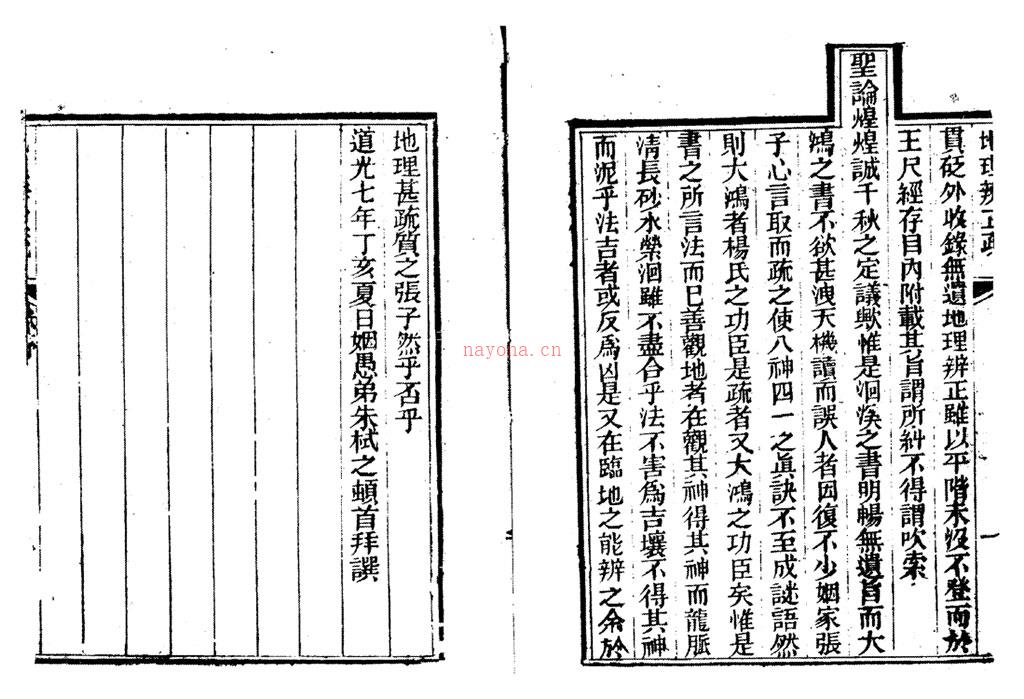 地理辨正疏
貫砭外收錄無遺地理辨正雖以平階未沒不登而於
玉尺經存目內附載其旨謂所糾不得謂吹索
聖論煌煌誠千秋之定議歟惟是洄溪之書明暢無遺旨而大
鴻之書不欲甚洩天機讀而誤人者因復不少姻家張
子心言取而疏之使八神四一之眞訣不至成謎語然
則大鴻者楊氏之功臣是疏者又大鴻之功臣矣惟是
書之所言法而已善觀地者在觀其神得其神而龍脈
淸長砂水縈洄雖不盡合乎法不害爲吉壤不得其神
而泥乎法吉者或反爲凶是又在臨地之能辨之余於
一
地理甚疏質之張子然乎否乎
道光七年丁亥夏日姻愚弟朱栻之頓首拜譔
nayona.cn